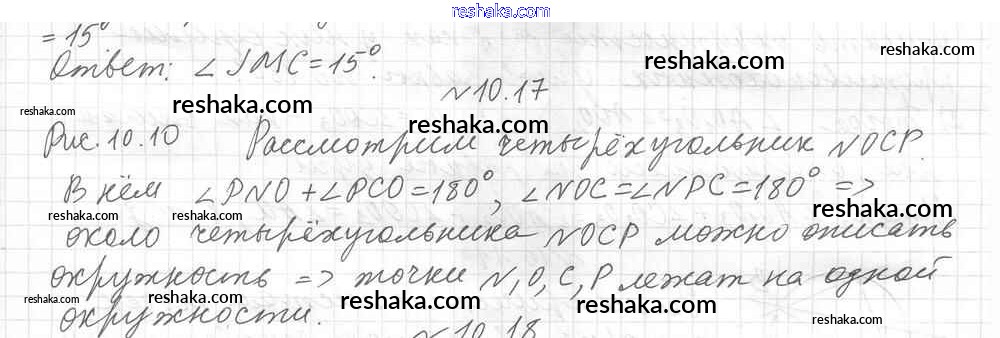 reshaka.com
= 15°
Ответ: ∠JMC = 15°.
reshaka.com
reshaka.com
№10.17
reshaka.com
reshaka.com
reshaka.com
Рис. 10.10 Рассмотрим четырёхугольник NOCP.
reshaka.com
В нём ∠PNO + ∠PCO = 180°, ∠NOC = ∠NPC = 180° =>
reshaka.com
reshaka.com
reshaka.com
около четырёхугольника NOCP можно описать
окружность => точки N, O, C, P лежат на одной
reshaka.com
reshaka.com
reshaka.com
reshaka.com
окружности.
reshaka.com
№10.18